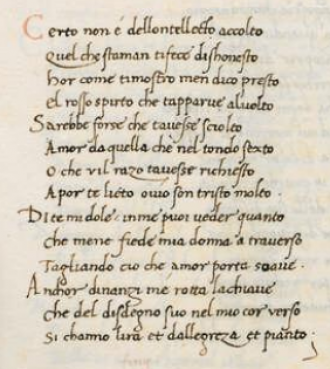 Certo non é dellontellecto accolto
Quel che staman ti fece dishonesto
Hor come timostro men dico presto
El rosso spirto che tapparue aluolto
Sarebbe forse che tauesse sciolto
Amor da quella che nel tondo sexto
O che vil razo tauesse richiesto
A por te liéto ouio son tristo molto.
Di te mi dole inme puoi ueder quanto
che mene fiede mia donna a trauerso
Tagliando cio che amor porta soaue.
Anchor dinanzi mé rotta lachiaue
che del disdegno suo nel mio cor verso
Si channo lira et dallegreza et pianto.